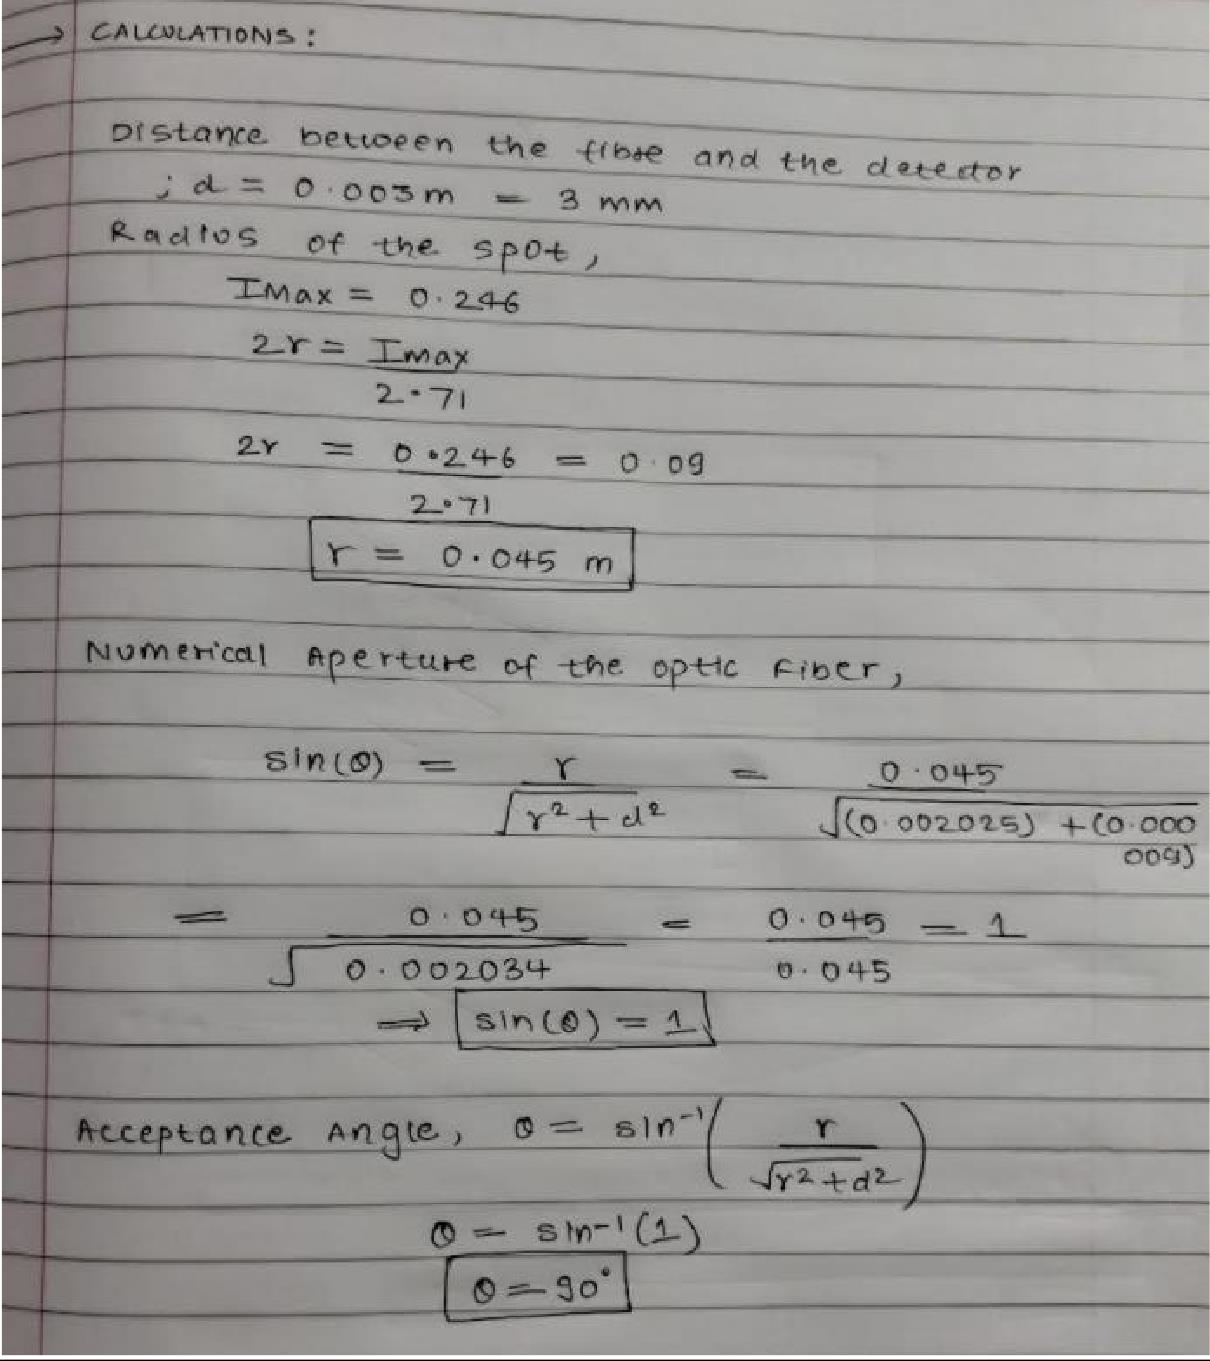 → CALCULATIONS:
Distance between the fibre and the detector
; d = 0.003m = 3 mm
Radius of the spot,
IMax = 0.246
2r = Imax / 2.71
2r = 0.246 / 2.71 = 0.09
r = 0.045 m
Numerical Aperture of the optic Fiber,
sin(θ) = r / √(r² + d²) = 0.045 / √((0.002025) + (0.000009))
= 0.045 / √0.002034 = 0.045 / 0.045 = 1
⇒ sin(θ) = 1
Acceptance Angle, θ = sin⁻¹(r / √(r² + d²))
θ = sin⁻¹(1)
θ = 90°